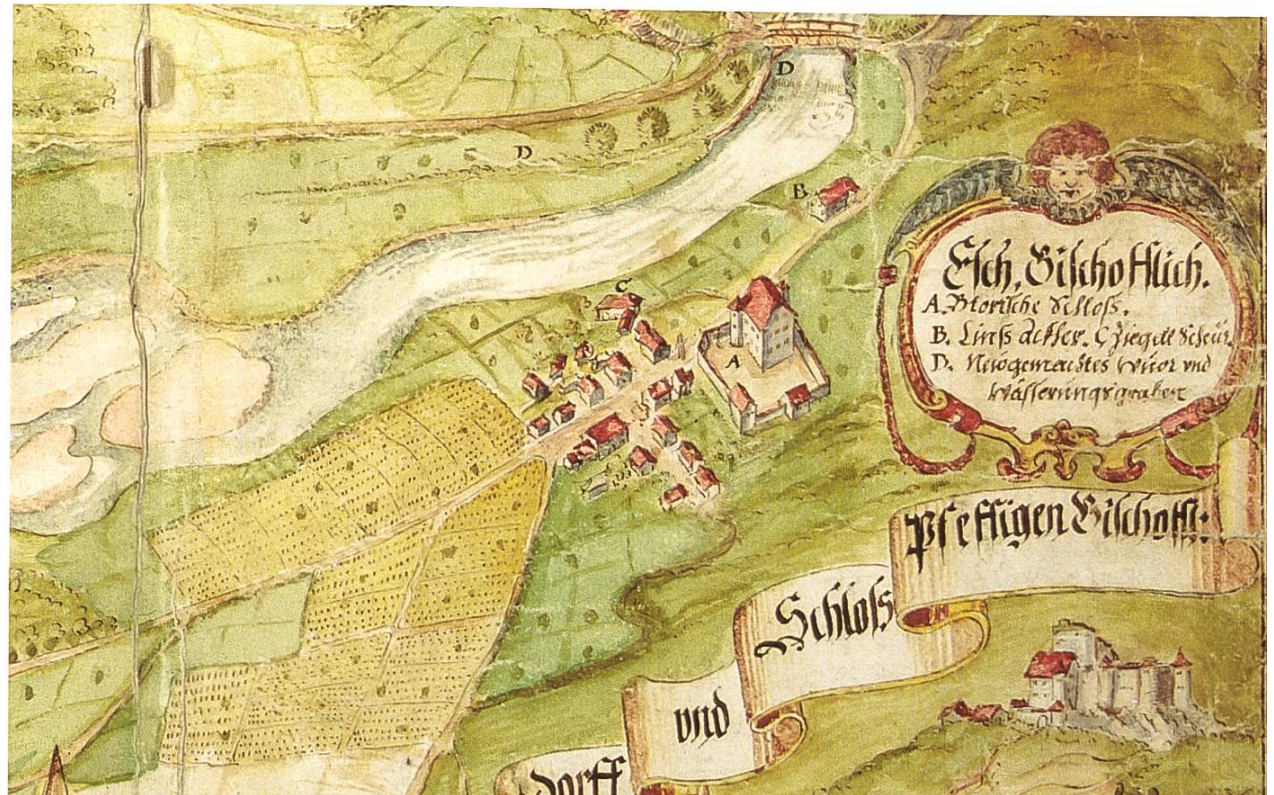 D
D
B
C
A
Esch, Bischofflich.
A. Schloss.
B. C Ziegell Scheür
D. Neüwgemachtes Wuor vnd
Wässerungsgraben
Pfeffigen Bischoffl:
Schloss
vnd
Dorff